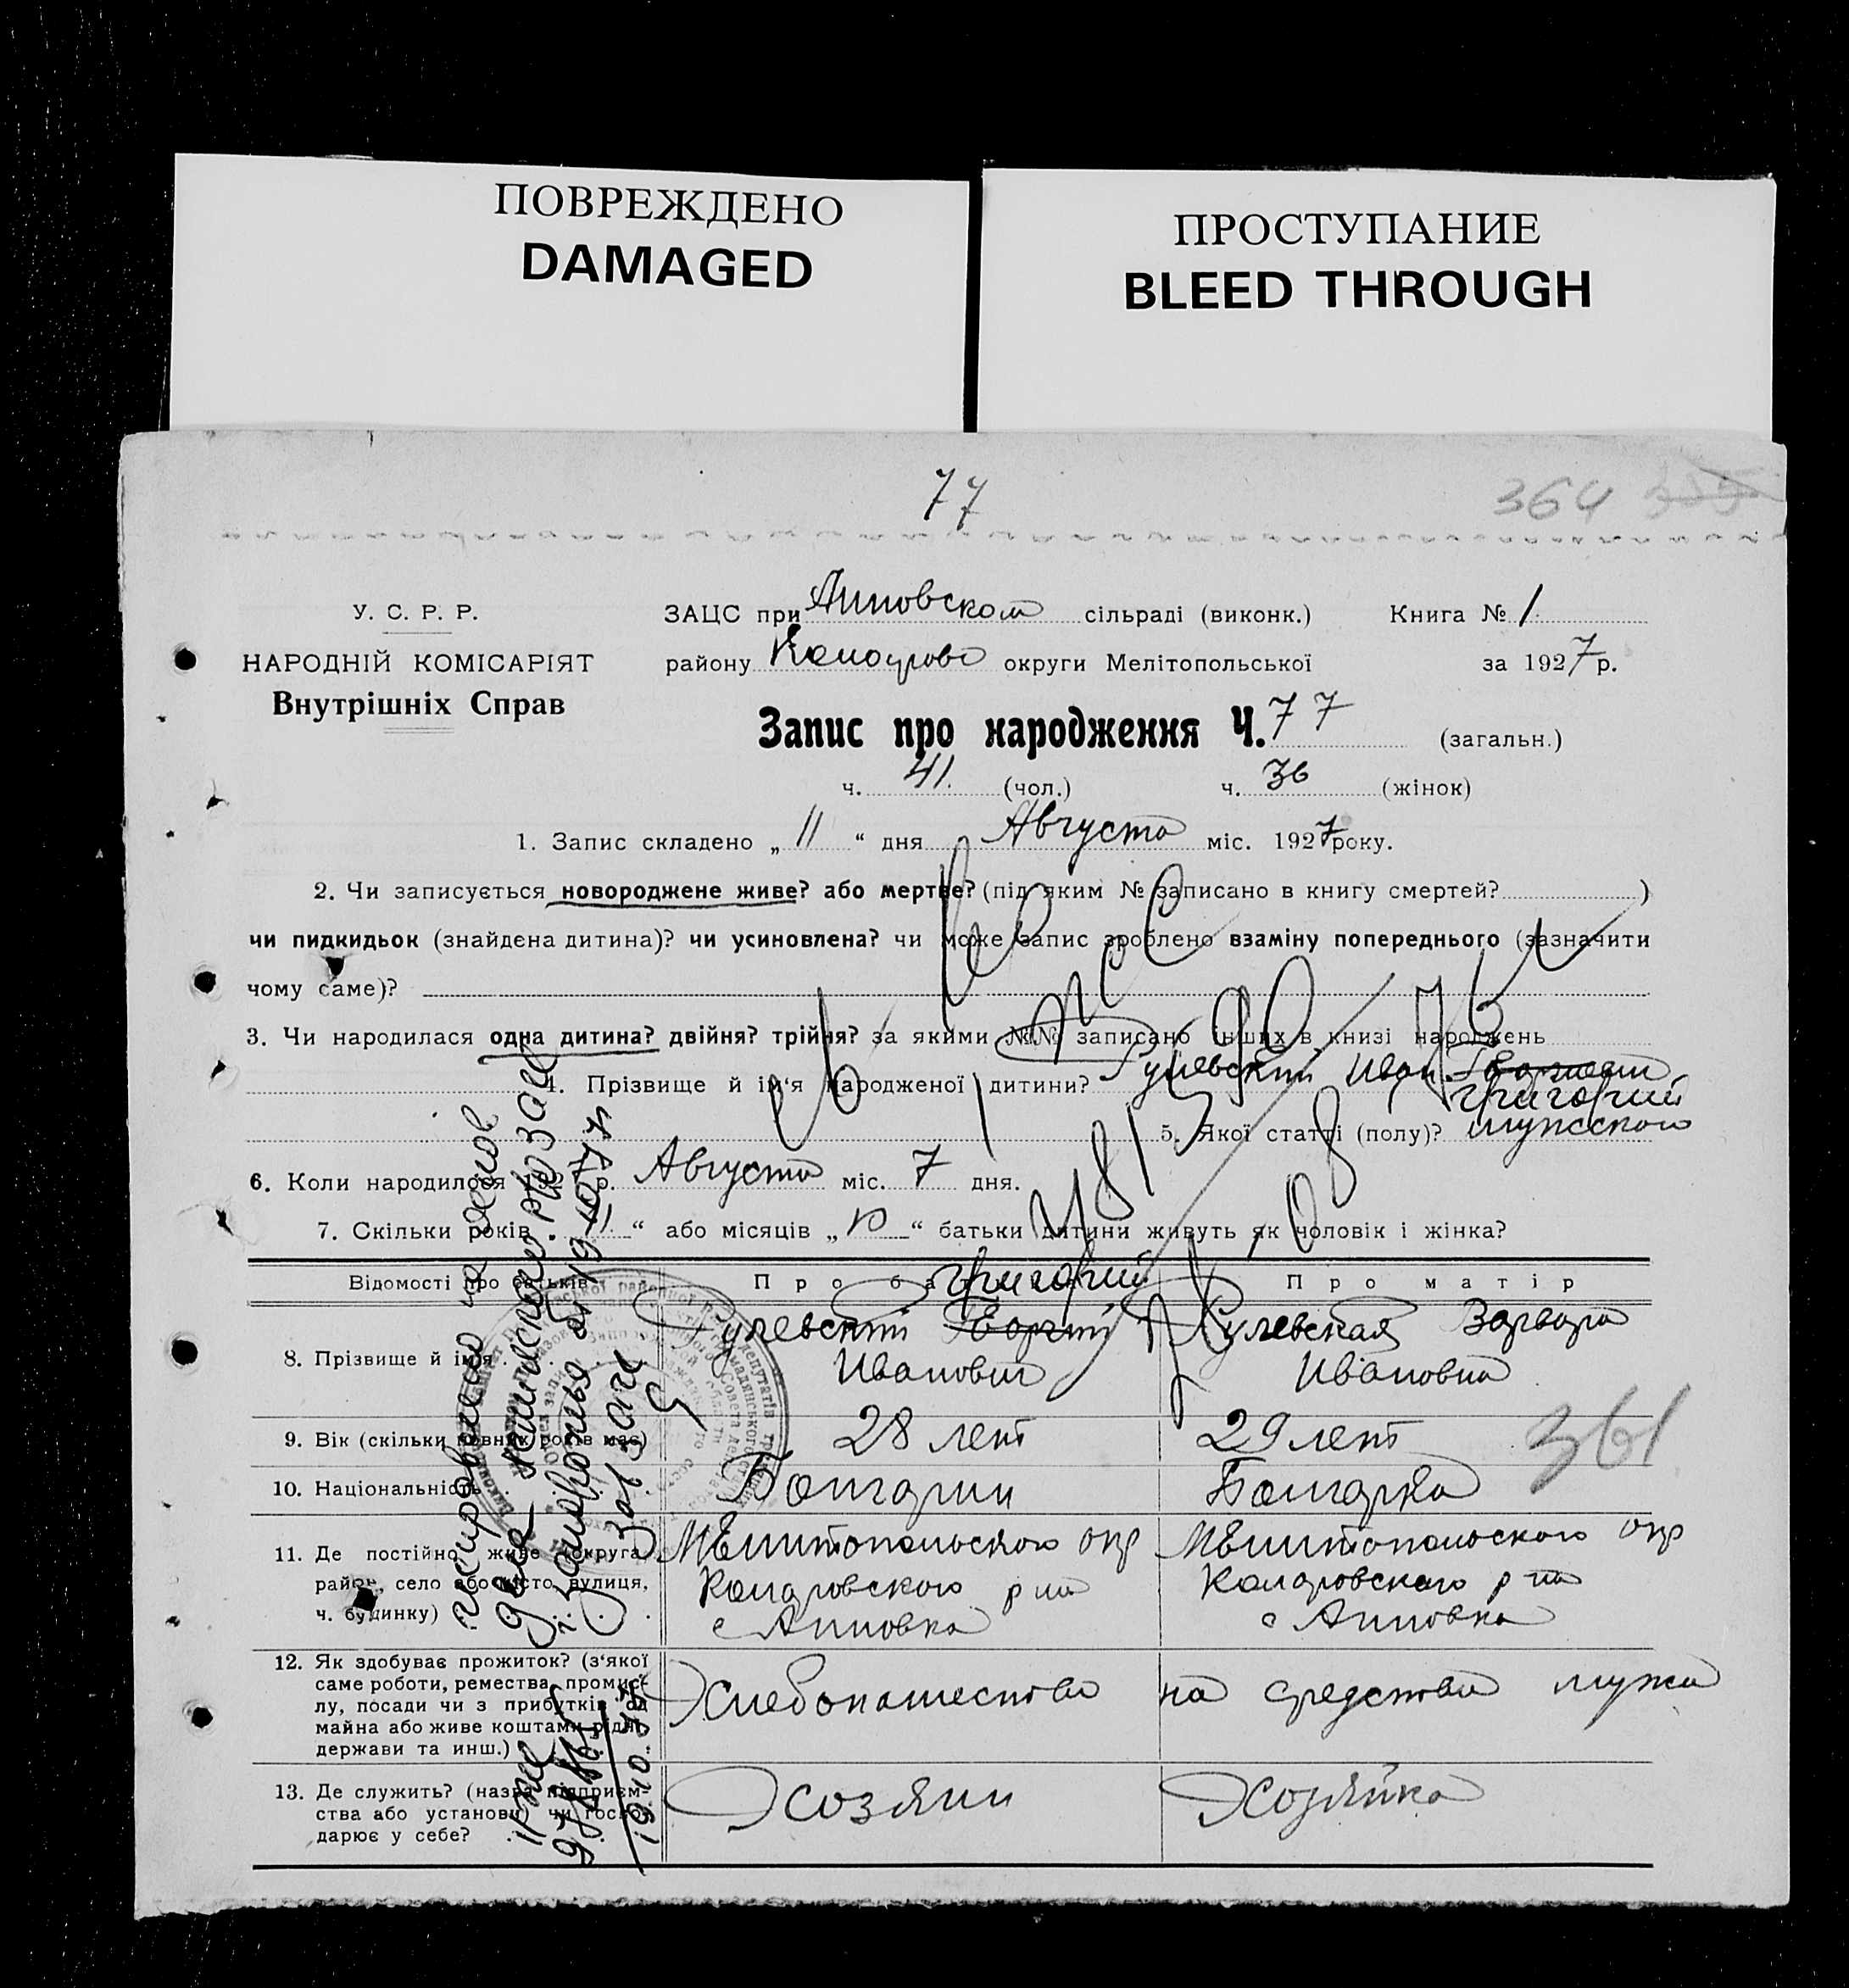 ПОВРЕЖДЕНО
DAMAGED
ПРОСТУПАНИЕ
BLEED THROUGH
77
364
У. С. Р. Р.
НАРОДНІЙ КОМІСАРІЯТ
Внутрішніх Справ
ЗАЦС при Анновском сільраді (виконк.) Книга № 1
району округи Мелітопольської за 1927 р.
Запис про народження Ч. 77 (загальн.)
ч. 41. (чол.) ч. 36 (жінок)
1. Запис складено „ 11 “ дня Августа міс. 1927 року.
2. Чи записується новороджене живе? або мертве? (під яким № записано в книгу смертей? )
чи пидкидьок (знайдена дитина)? чи усиновлена? чи може запис зроблено взаміну попереднього (зазначити
чому саме)?
3. Чи народилася одна дитина? двійня? трійня? за якими №№ записано інших в книзі народжень
4. Прізвище й ім‘я народженої дитини? Гулевский Иван
Григорий
5. Якої статті (полу)? мужского
6. Коли народилося 192 р. Августа міс. 7 дня.
7. Скільки років „ 11 “ або місяців „ “ батьки дитини живуть як чоловік і жінка?
Відомості про батьків Про батька Про матір
Григорий
8. Прізвище й ім‘я Гулевский Георгий Иванович
Гулевская Варвара Ивановна
9. Вік (скільки повних років має) 28 лет 29 лет
361
10. Національність Болгарин Болгарка
11. Де постійно живе (округа, район, село або місто, вулиця, ч. будинку)
Мелитопольского окр
Коларовского р на
с Анновка
Мелитопольского окр
Коларовского р на
с Анновка
12. Як здобуває прожиток? (з‘якої саме роботи, ремества, промислу, посади чи з прибутків од майна або живе коштами рідні, держави та инш.)
Хлебопашество
на средства мужа
13. Де служить? (назва підприємства або установи) чи господарює у себе?
Хозяин
Хозяйка
Исправлено на основ
19.10.77